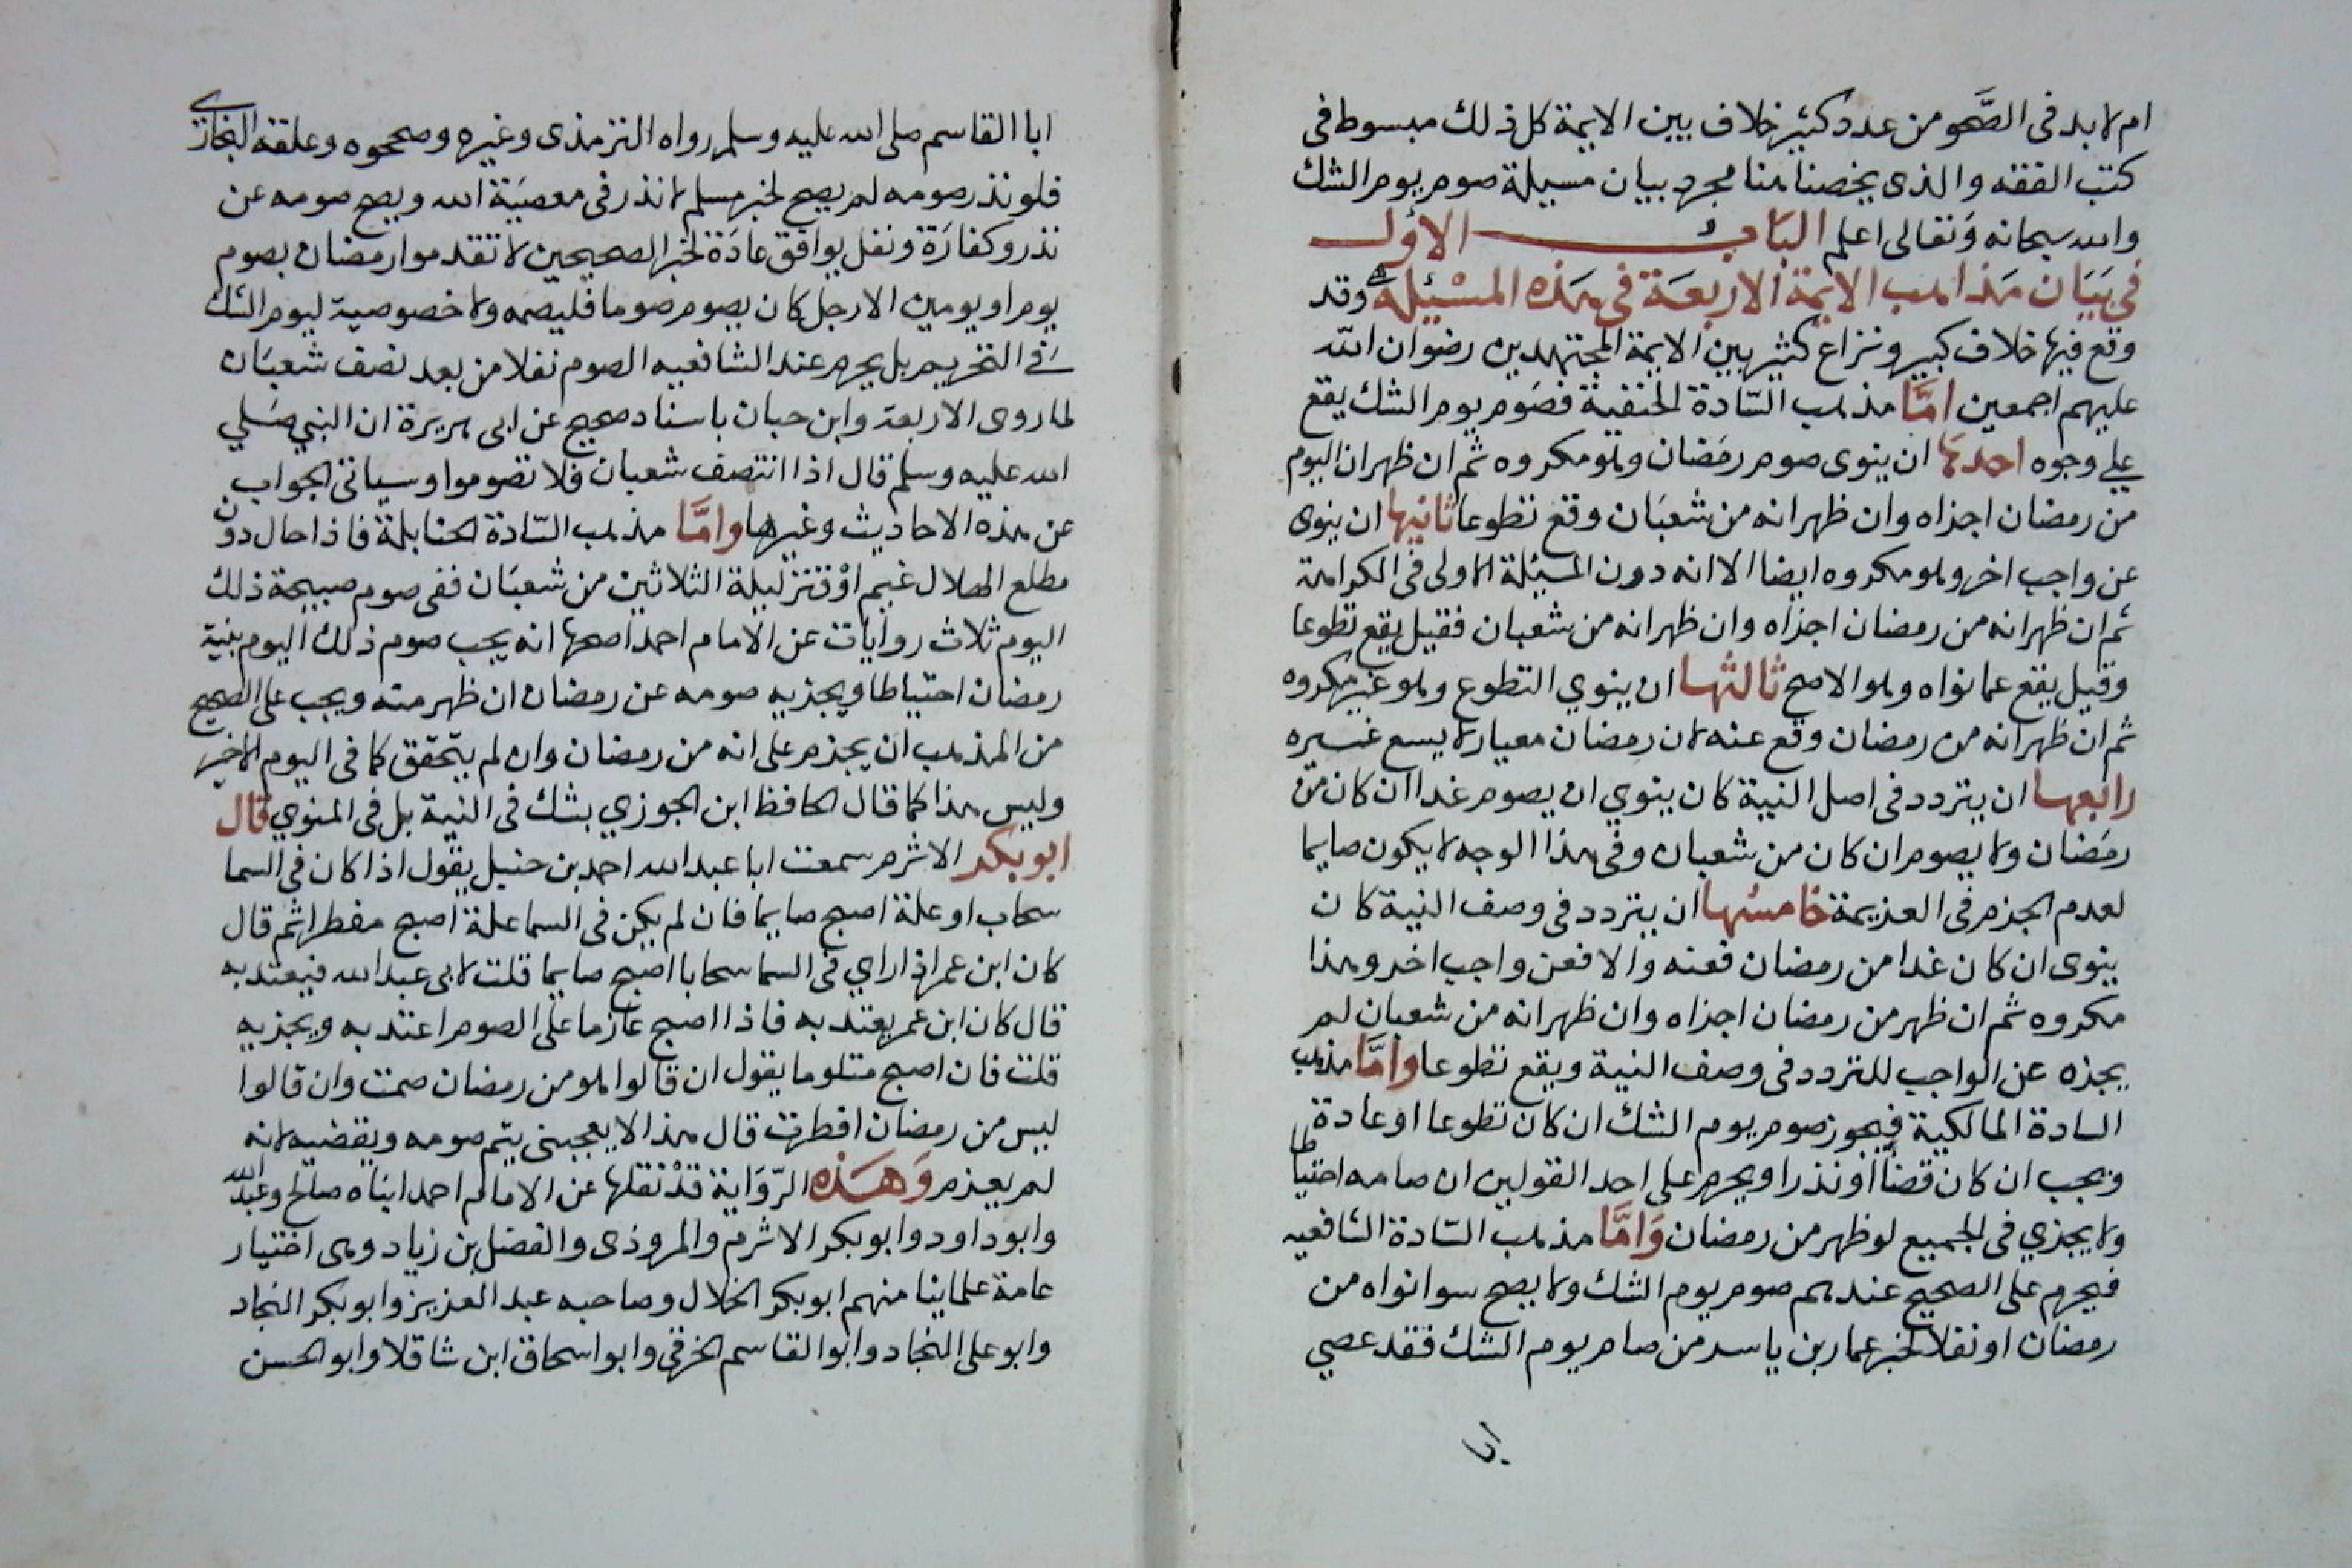 ام لابد فى الصَّحو من عدد كثير خلاف بين الايمة كل ذلك مبسوط فى
كتب الفقه والذى يخصنا هنا مجرد بيان مسيلة صوم يوم الشك
والله سبحانه وتعالى اعلم البَابُ الاول
فى بَيَان مَذاهب الايمة الاربعَة فى هَذه المسْئِلة وقد
وقع فيها خلاف كبير ونزاع كثير بين الايمة المجتهدين رضوان الله
عليهم اجمعين امَّا مذهب السّادة الحنفية فصَوم يوم الشك يقع
على وجوه احدها ان ينوى صوم رمَضان وهو مكروه ثم ان ظهر ان اليوم
من رمضان اجزاه وان ظهر انه من شعبَان وقع تطوعا ثانيها ان ينوى
عن واجب اخر وهو مكروه ايضا الا انه دون المسيلة الاولى فى الكراهة
ثم ان ظهر انه من رمضان اجزاه وان ظهر انه من شعبان فقيل يقع تطوعا
وقيل يقع عما نواه وهو الاصح ثالثها ان ينوي التطوع وهو غير مكروه
ثم ان ظهر انه من رمضان وقع عنه لان رمضان معيار لا يسع غيره
رابعها ان يتردد فى اصل النية كان ينوي ان يصوم غدا ان كان من
رمَضان ولا يصوم ان كان من شعبان وفى هذا الوجه لا يكون صايما
لعدم الجزم فى العزيمة خامسُها ان يتردد فى وصف النية كان
ينوى ان كان غدا من رمضان فعنه والا فعن واجب اخر وهذا
مكروه ثم ان ظهر من رمضان اجزاه وان ظهر انه من شعبان لم
يجزه عن الواجب للتردد فى وصف النية ويقع تطوعا وامَّا مذهب
السادة المالكية فيجوز صوم يوم الشك ان كان تطوعا او عادة
ويجب ان كان قضاً او نذرا ويحرم على احد القولين ان صامه احتياطا
ولا يجزي فى الجميع لو ظهر من رمضان وَامَّا مذهب السّادة الشافعيه
فيحرم على الصحيح عندهم صوم يوم الشك ولا يصح سوا نواه من
رمضان او نفلا لخبر عمار بن ياسر من صام يوم الشك فقد عصي
ابا
ابا القاسم صلى الله عليه وسلم رواه الترمذى وغيره وصححوه وعلقه البخارى
فلو نذر صومه لم يصح لخبر مسلم لا نذر فى معصيَة الله ويصح صومه عن
نذر وكفارَة ونفل يوافق عادَة لخبر الصحيحين لا تقدموا رمضان بصوم
يوم او يومين الا رجل كان يصوم صوما فليصمه ولا خصوصية ليوم الشك
فى التحريم بل يحرم عند الشافعيه الصوم نفلا من بعد نصف شعبَان
لما روى الاربعة وابن حبان باسناد صحيح عن ابى هريرة ان النبي صَلي
الله عليه وسلم قال اذا انتصف شعبان فلا تصوموا وسياتى الجواب
عن هذه الاحاديث وغيرها وامَّا مذهب السّادة الحنابلة فاذا حال دون
مطلع الهلال غيم اوْ قتر ليلة الثلاثين من شعبَان ففى صوم صبيحة ذلك
اليوم ثلاث روايات عن الامام احمد اصحها انه يجب صوم ذلك اليوم بنية
رمضان احتياطا ويجزيه صومه عن رمضان ان ظهر منه ويجب على الصحيح
من المذهب ان يجزم على انه من رمضان وان لم يتحقق كما فى اليوم الاخير
وليس هذا كما قال الحافظ ابن الجوزي بشك فى النية بل فى المنوي قال
ابو بكر الاثرم سمعت ابا عبد الله احمد بن حنبل يقول اذا كان فى السما
سحاب او علة اصبح صايما فان لم يكن فى السما علة اصبح مفطرا ثم قال
كان ابن عمر اذا راي فى السما سحابا اصبح صايما قلت لابى عبد الله فيعتد به
قال كان ابن عمر يعتد به فاذا اصبح عازما على الصوم اعتد به ويجزيه
قلت فان اصبح متلوما يقول ان قالوا هو من رمضان صمت وان قالوا
ليس من رمضان افطرت قال هذا لا يعجبنى يتم صومه ويقضيه لانه
لم يعزم وَهَذه الرّوَاية قدْ نقلها عن الامام احمد ابناه صالح وعبد الله
وابو داود وابو بكر الاثرم والمروذى والفضل بن زياد وهى اختيار
عامة علماينا منهم ابو بكر الخلال وصاحبه عبد العزيز وابو بكر النجاد
وابو على النجاد وابو القاسم الخرقى وابو اسحاق ابن شاقلا وابو الحسن